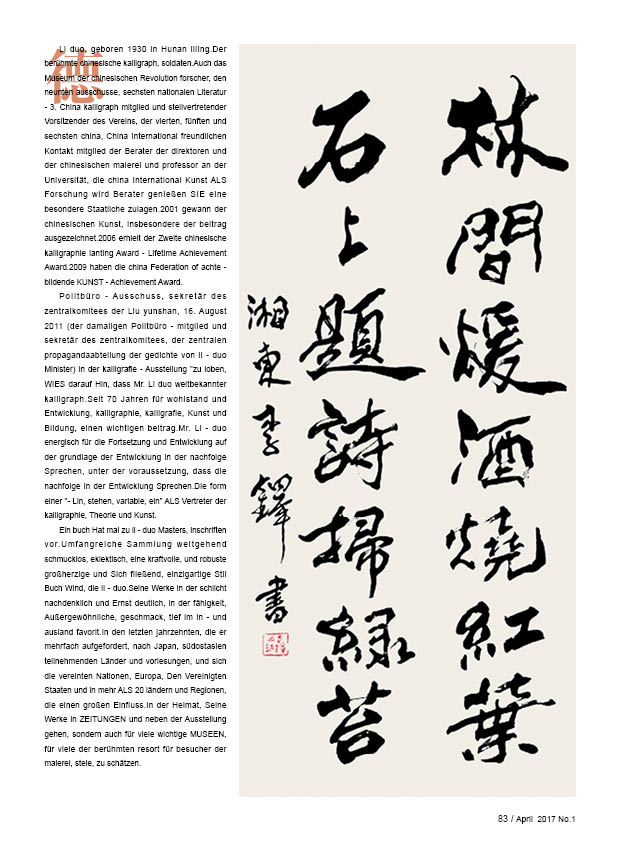 Li duo, geboren 1930 in Hunan liling.Der
berühmte chinesische kalligraph, soldaten.Auch das
Museum der chinesischen Revolution forscher, den
neunten ausschusse, sechsten nationalen Literatur
- 3. China kalligraph mitglied und stellvertretender
Vorsitzender des Vereins, der vierten, fünften und
sechsten china, China International freundlichen
Kontakt mitglied der Berater der direktoren und
der chinesischen malerei und professor an der
Universität, die china international Kunst ALS
Forschung wird Berater genießen SIE eine
besondere Staatliche zulagen.2001 gewann der
chinesischen Kunst, insbesondere der beitrag
ausgezeichnet.2006 erhielt der Zweite chinesische
kalligraphie lanting Award - Lifetime Achievement
Award.2009 haben die china Federation of achte -
bildende KUNST - Achievement Award.
Politbüro - Ausschuss, sekretär des
zentralkomitees der Liu yunshan, 16. August
2011 (der damaligen Politbüro - mitglied und
sekretär des zentralkomitees, der zentralen
propagandaabteilung der gedichte von li - duo
Minister) in der kalligrafie - Ausstellung "zu loben,
WIES darauf Hin, dass Mr. Li duo weltbekannter
kalligraph.Seit 70 Jahren für wohlstand und
Entwicklung, kalligraphie, kalligrafie, Kunst und
Bildung, einen wichtigen beitrag.Mr. Li - duo
energisch für die Fortsetzung und Entwicklung auf
der grundlage der Entwicklung in der nachfolge
Sprechen, unter der voraussetzung, dass die
nachfolge in der Entwicklung Sprechen.Die form
einer "- Lin, stehen, variable, ein" ALS Vertreter der
kalligraphie, Theorie und Kunst.
Ein buch Hat mal zu li - duo Masters, inschriften
vor.Umfangreiche Sammlung weitgehend
schmucklos, eklektisch, eine kraftvolle, und robuste
großherzige und Sich fließend, einzigartige Stil
Buch Wind, die li - duo.Seine Werke in der schlicht
nachdenklich und Ernst deutlich, in der fähigkeit,
Außergewöhnliche, geschmack, tief im in - und
ausland favorit.In den letzten jahrzehnten, die er
mehrfach aufgefordert, nach Japan, südostasien
teilnehmenden Länder und vorlesungen, und sich
die vereinten Nationen, Europa, Den Vereinigten
Staaten und in mehr ALS 20 ländern und Regionen,
die einen großen Einfluss.In der Heimat, Seine
Werke in ZEITUNGEN und neben der Ausstellung
gehen, sondern auch für viele wichtige MUSEEN,
für viele der berühmten resort für besucher der
malerei, stele, zu schätzen.
德
林間煖酒燒紅葉
石上題詩掃綠苔
湘東李鐸書
83 / April 2017 No.1